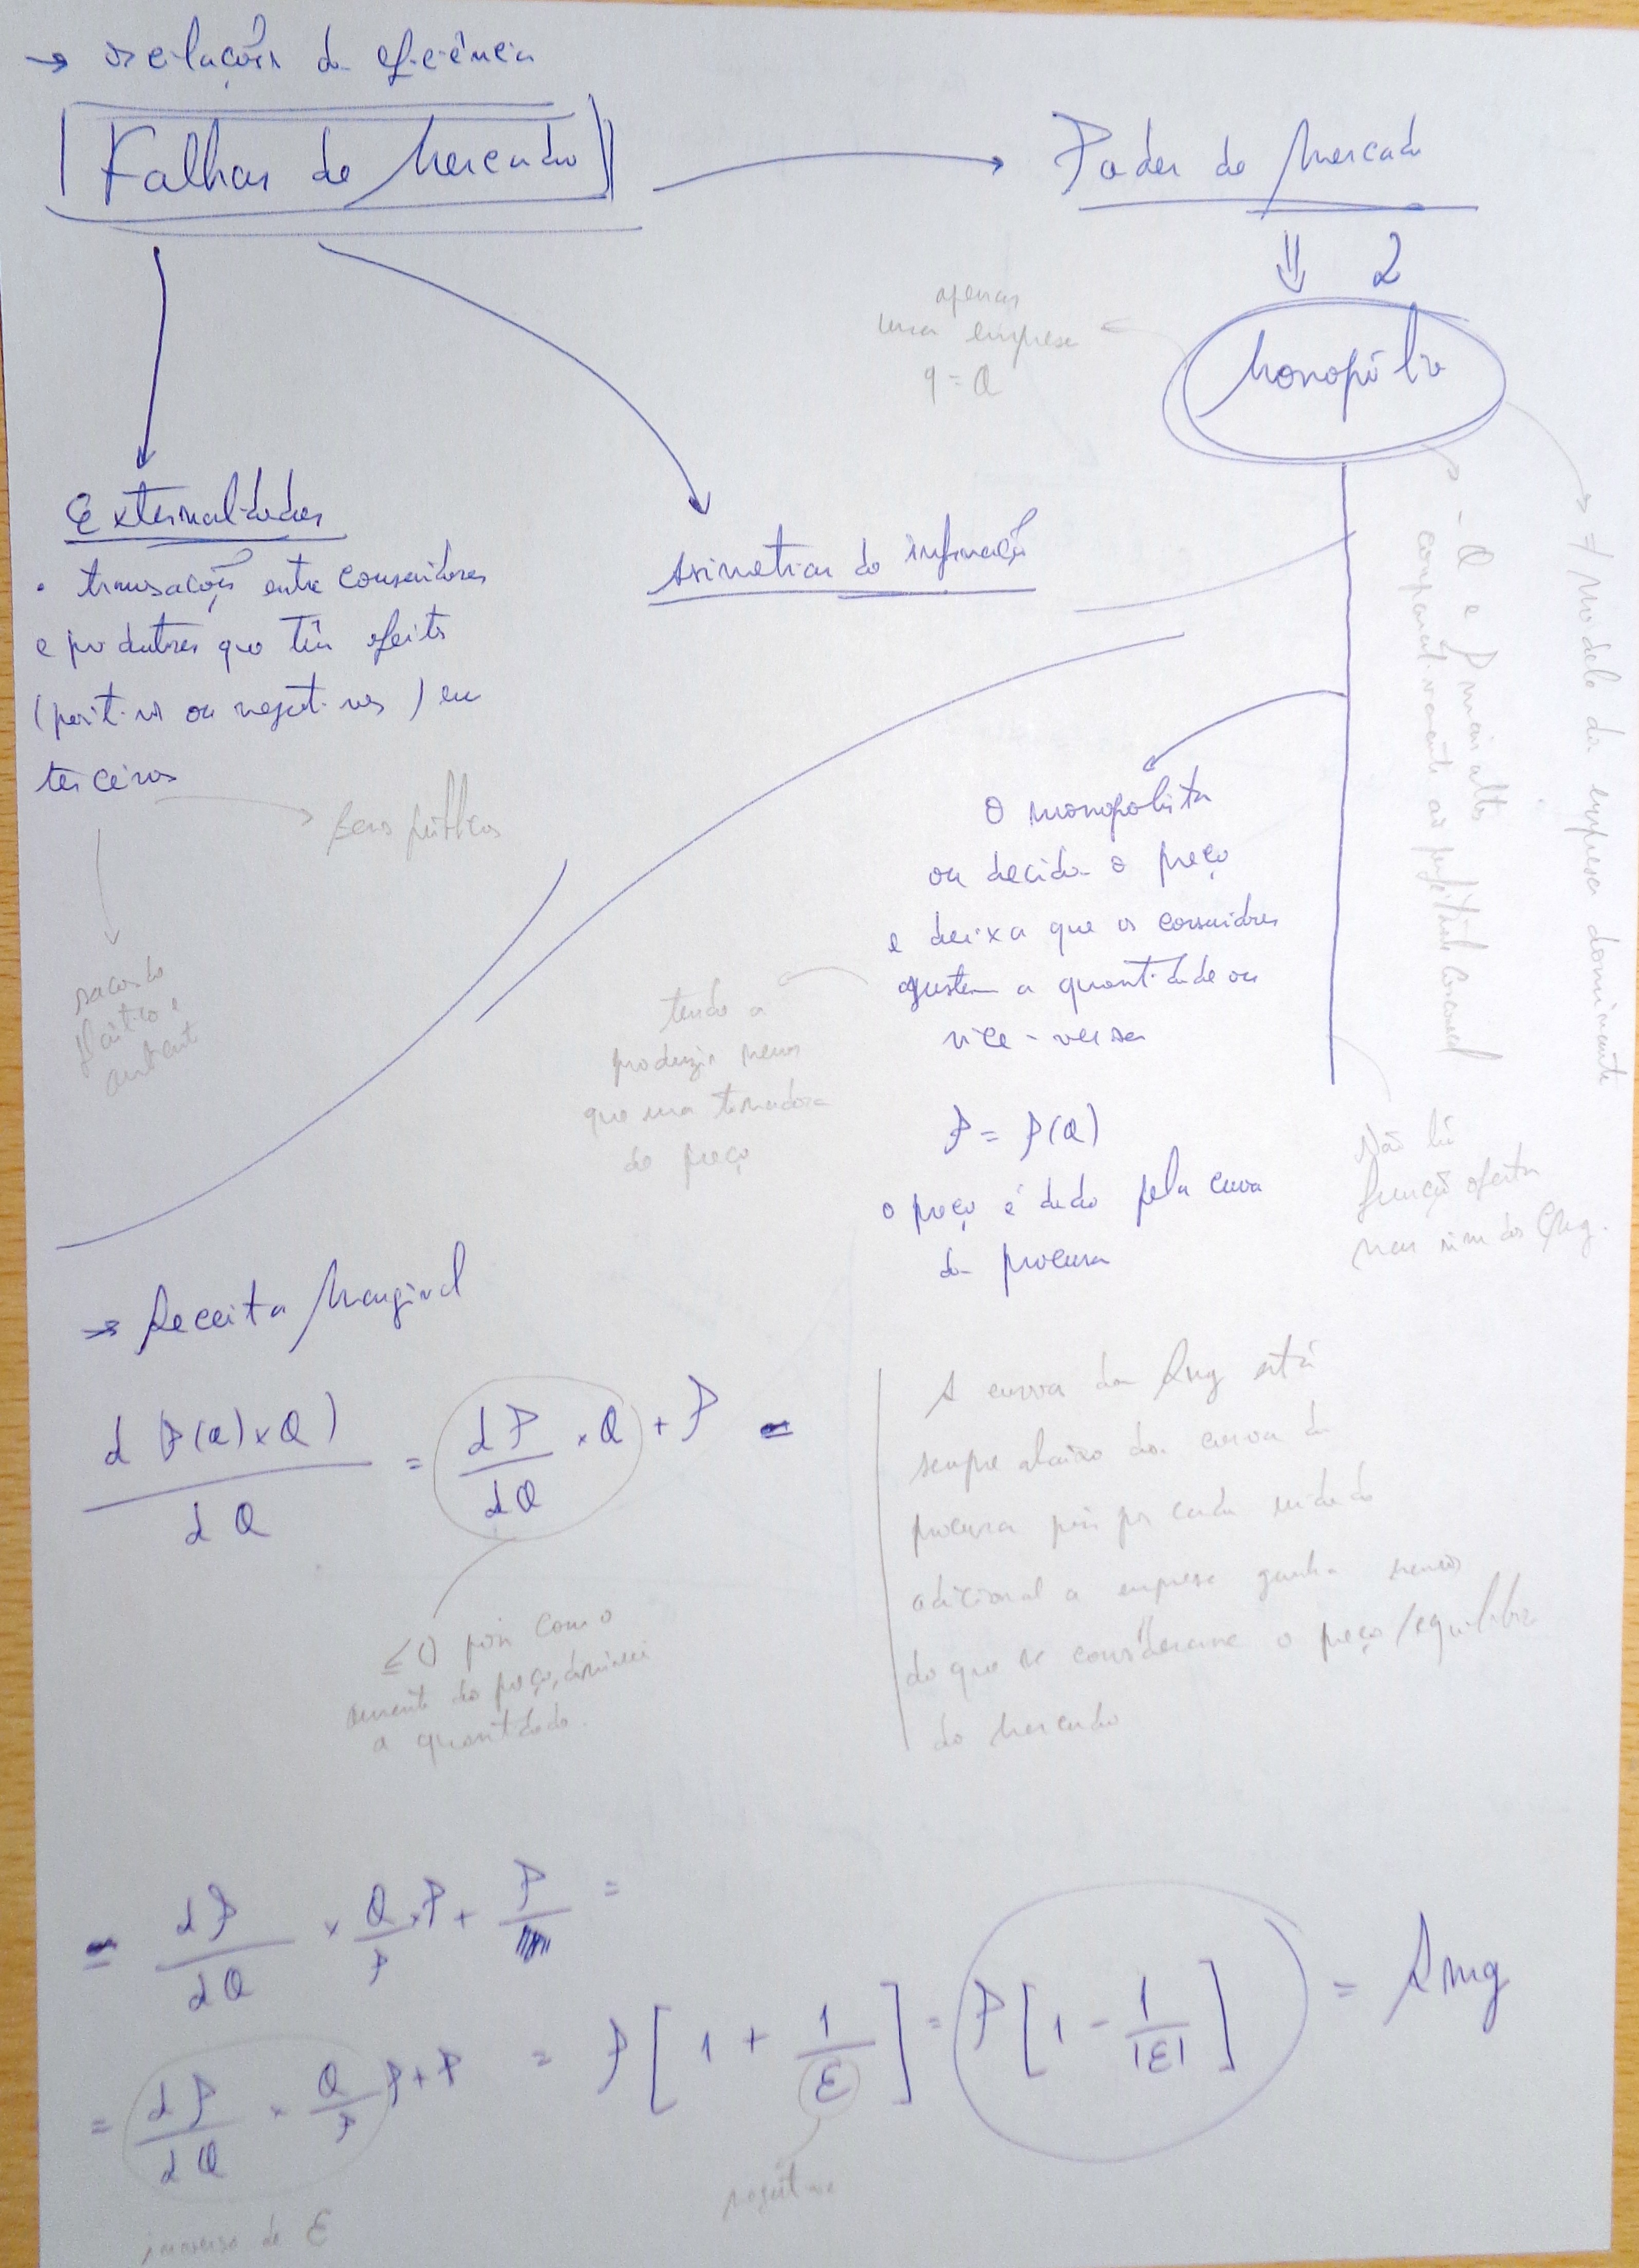 → oscilações da eficiência
Falhas de Mercado
Poder de Mercado
⇓ 2
Monopólio
apenas
uma empresa
q = Q
Externalidades
• transações entre consumidores
e produtores que têm efeitos
(positivos ou negativos) em
terceiros
bens públicos
sacos de
plástico e
ambiente
Assimetrias de informação
- Q e P mais altos
comparativamente ao perfeitamente concorrencial
≠ modelo da empresa dominante
O monopolista
ou decide o preço
e deixa que os consumidores
ajustem a quantidade ou
vice-versa
tende a
produzir menos
que uma tomadora
de preço
P = P(Q)
o preço é dado pela curva
da procura
Não há
função oferta
mas sim
→ Receita Marginal
d (P(Q) × Q) / dQ = dP/dQ × Q + P =
≤ 0 pois com o
aumento do preço, diminui
a quantidade.
A curva da Rmg está
sempre abaixo da curva da
procura pois por cada unidade
adicional a empresa ganha menos
do que se considerasse o preço/equilíbrio
do mercado
= dP/dQ × Q/P × P + P =
= dP/dQ × Q/P P + P = P [ 1 + 1/ε ] = P [ 1 - 1/|ε| ] = Rmg
inverso de ε
negativo